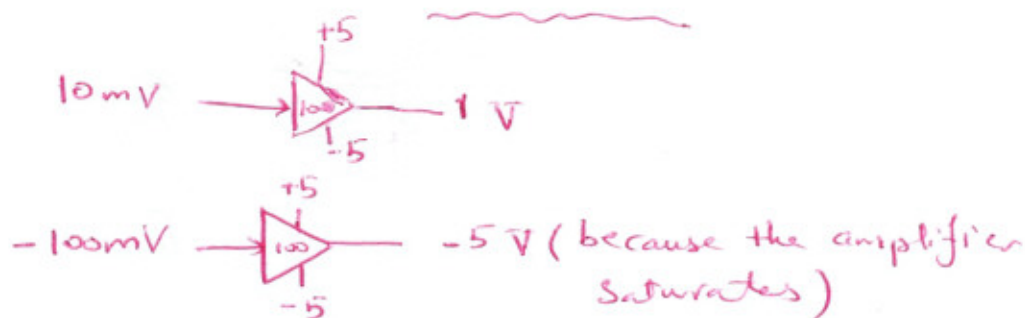 +5
10mV 100 1 V
-5
+5
-100mV 100 -5 V (because the amplifier
-5 saturates)